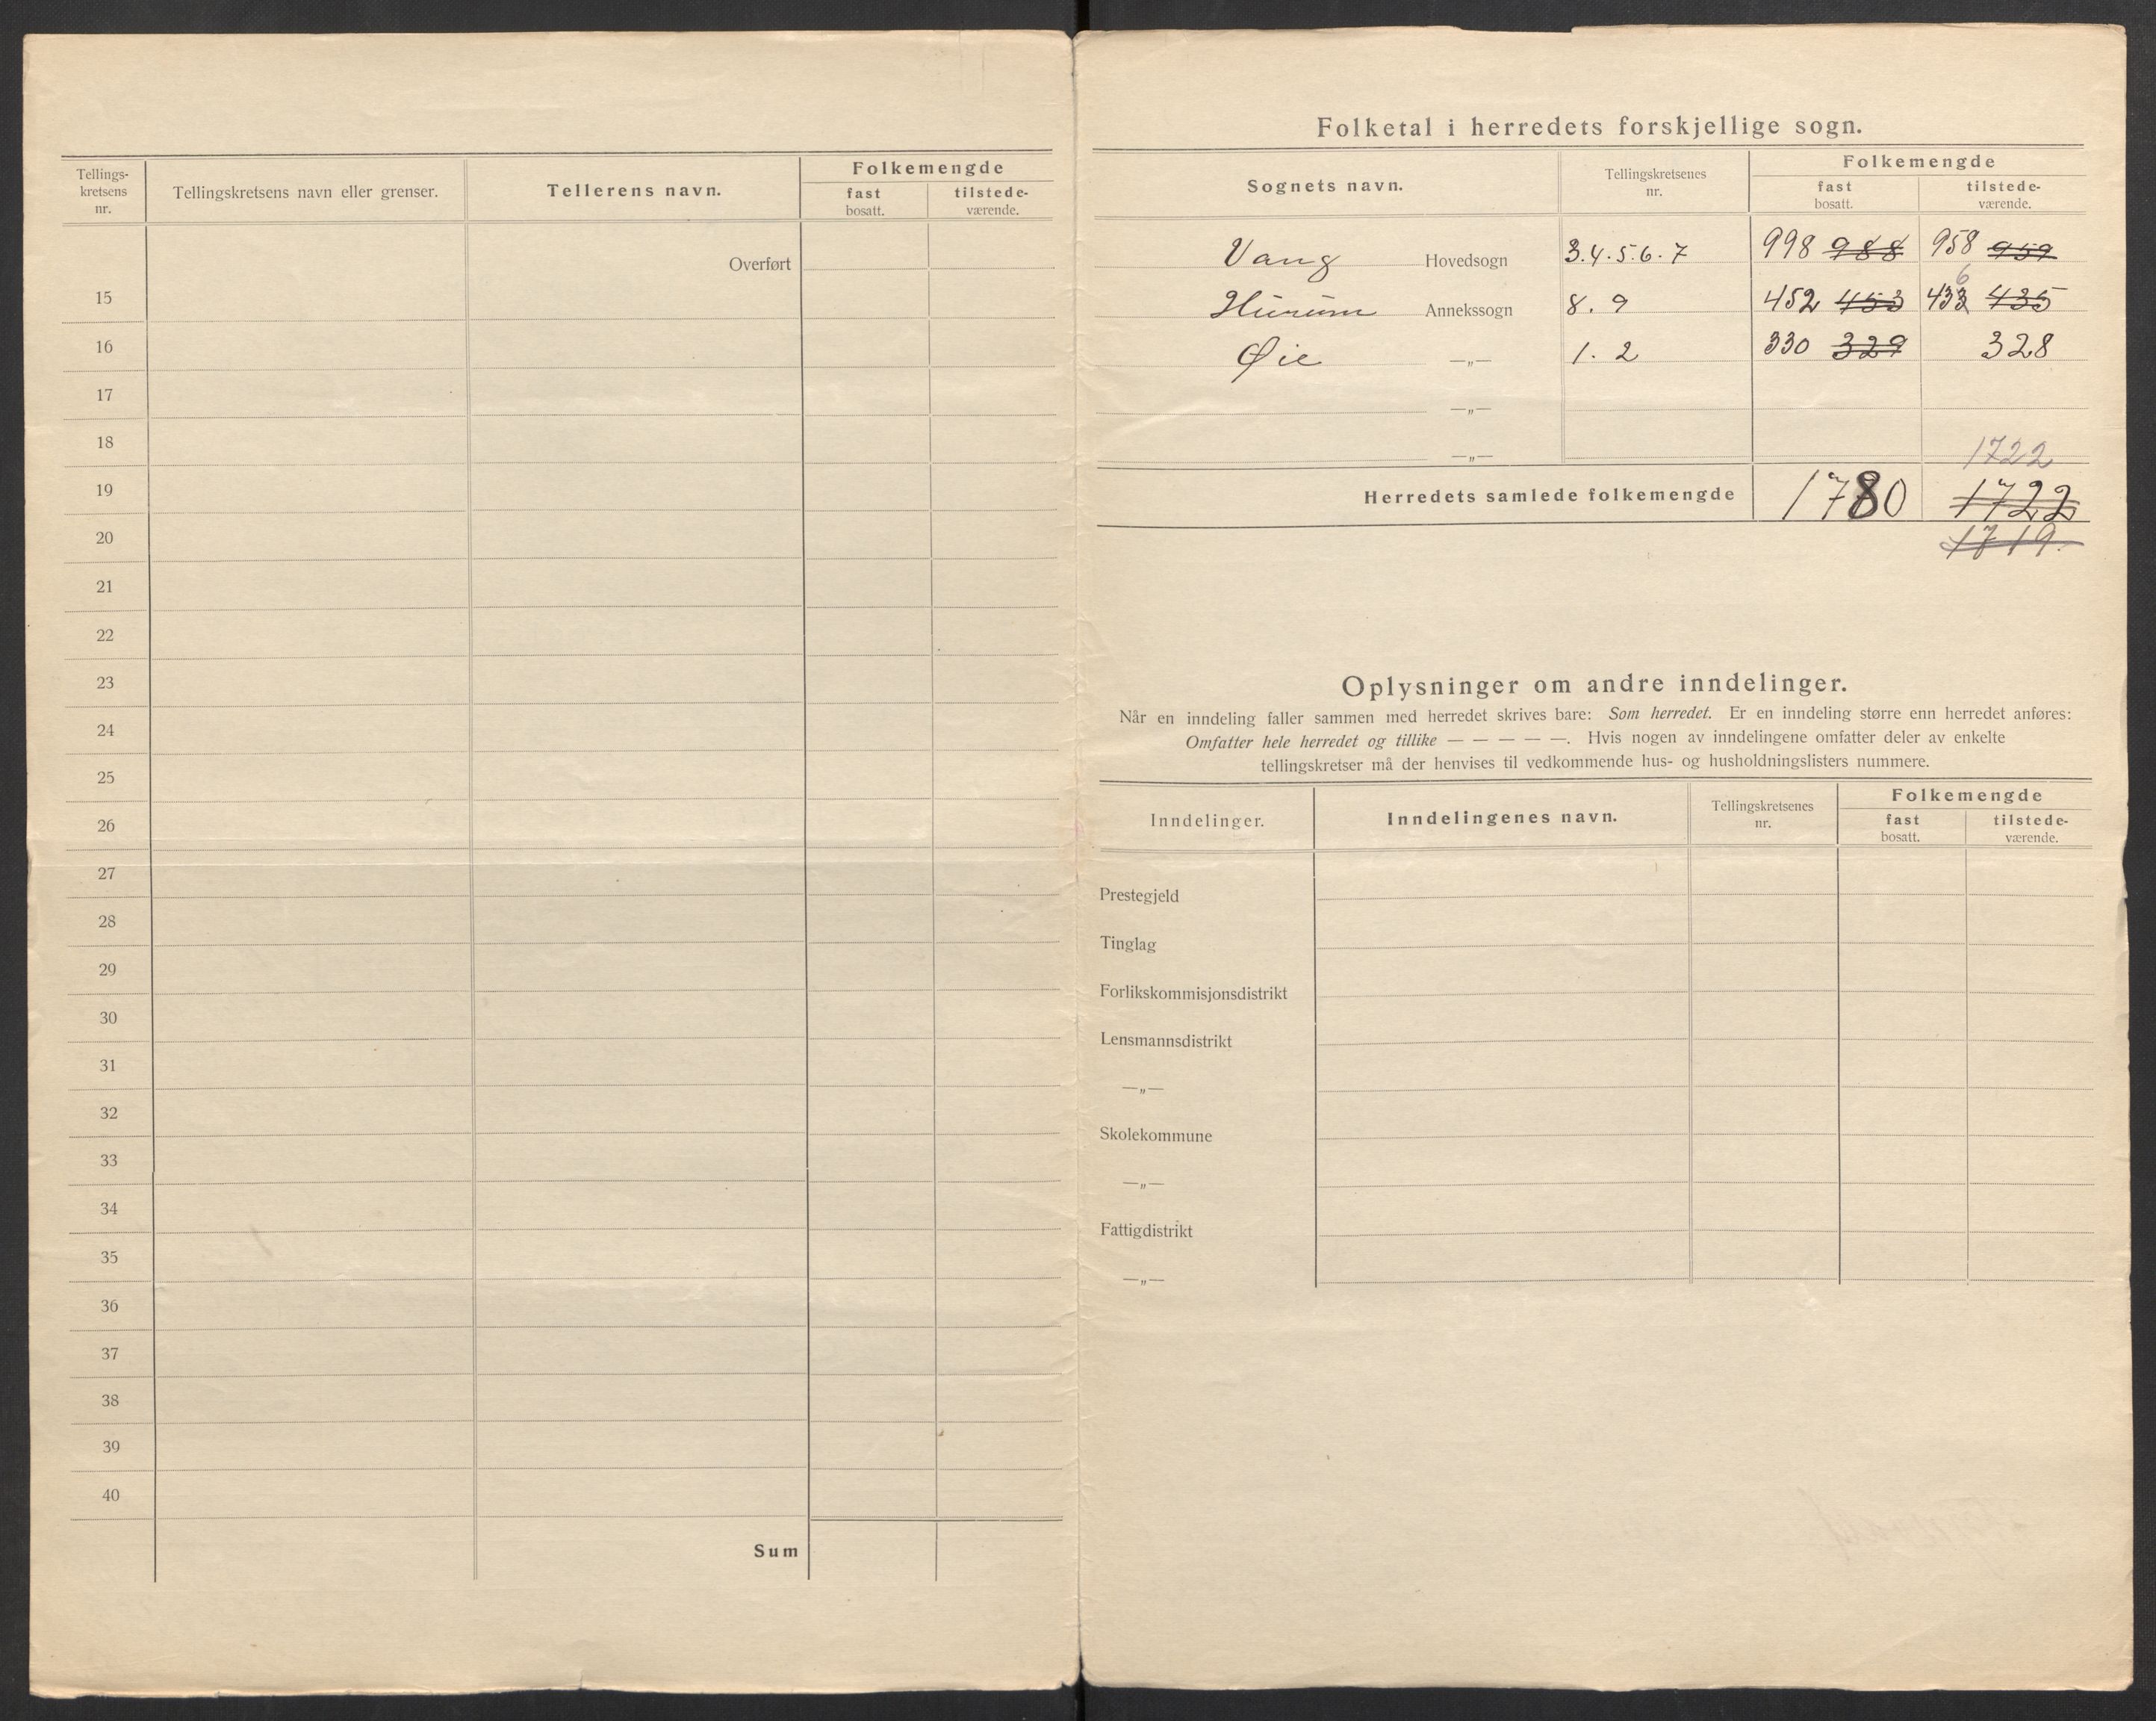 Tellings-
kretsens
nr.
Tellingskretsens navn eller grenser.
Tellerens navn.
Folkemengde
fast
bosatt.
tilstede-
værende.
Overført
15
16
17
18
19
20
21
22
23
24
25
26
27
28
29
30
31
32
33
34
35
36
37
38
39
40
Sum
Folketal i herredets forskjellige sogn.
Sognets navn.
Tellingskretsenes
nr.
Folkemengde
fast
bosatt.
tilstede-
værende.
Vang Hovedsogn 3.4.5.6.7 998 988 958 959
6
Hurum Annekssogn 8. 9 452 453 433 435
Øie —„— 1. 2 330 329 328
—„—
—„— 1722
Herredets samlede folkemengde 1780 1722
1719.
Oplysninger om andre inndelinger.
Når en inndeling faller sammen med herredet skrives bare: Som herredet. Er en inndeling større enn herredet anføres:
Omfatter hele herredet og tillike — — — — —. Hvis nogen av inndelingene omfatter deler av enkelte
tellingskretser må der henvises til vedkommende hus- og husholdningslisters nummere.
Inndelinger.
Inndelingenes navn.
Tellingskretsenes
nr.
Folkemengde
fast
bosatt.
tilstede-
værende.
Prestegjeld
Tinglag
Forlikskommisjonsdistrikt
Lensmannsdistrikt
—„—
Skolekommune
—„—
Fattigdistrikt
—„—